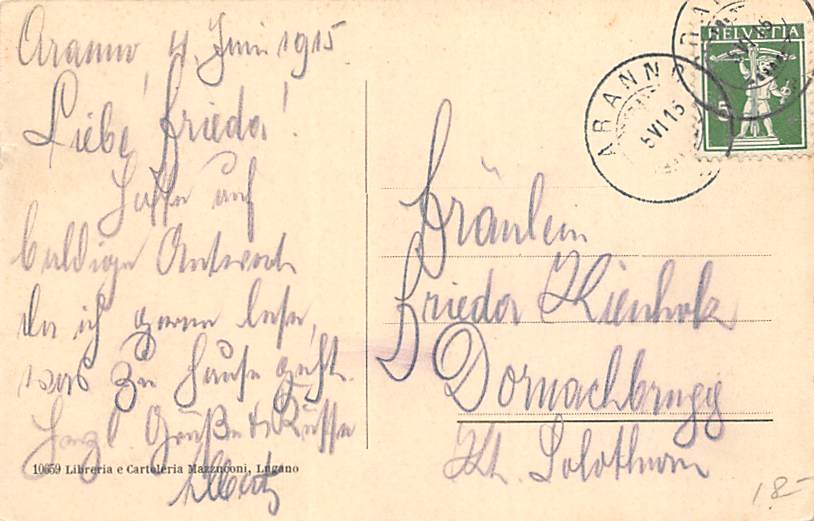 Aranno, 4. Juni 1915
Liebe Frieda!
Hoffe auf
baldige Antwort
da ich gerne lese,
was zu Hause geht.
Herzl. Grüße & Küsse
Albert
10659 Libreria e Cartoleria Mazzuconi, Lugano
Fräulein
Frieda Kienholz
Dornachbrugg
Kt. Solothurn
ARANNO
5 VI 15
HELVETIA
5
18-